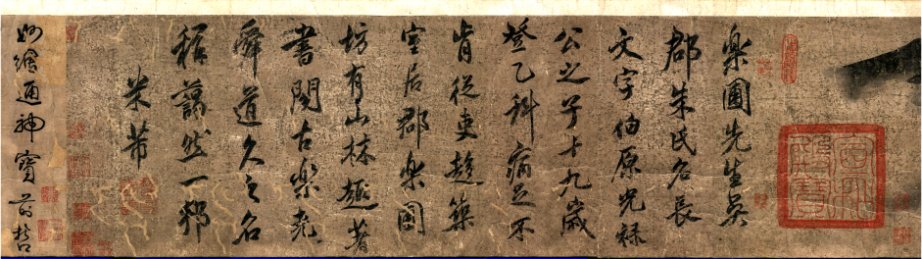 樂圃先生吴
郡朱氏名長
文字伯原光禄
公之子十九歲
登乙科病足不
肯從吏趨築
室居郡樂圃
坊有山林趣著
書閱古樂堯
舜道久之名
稱藹然一邦
米芾
妙繪通神寶